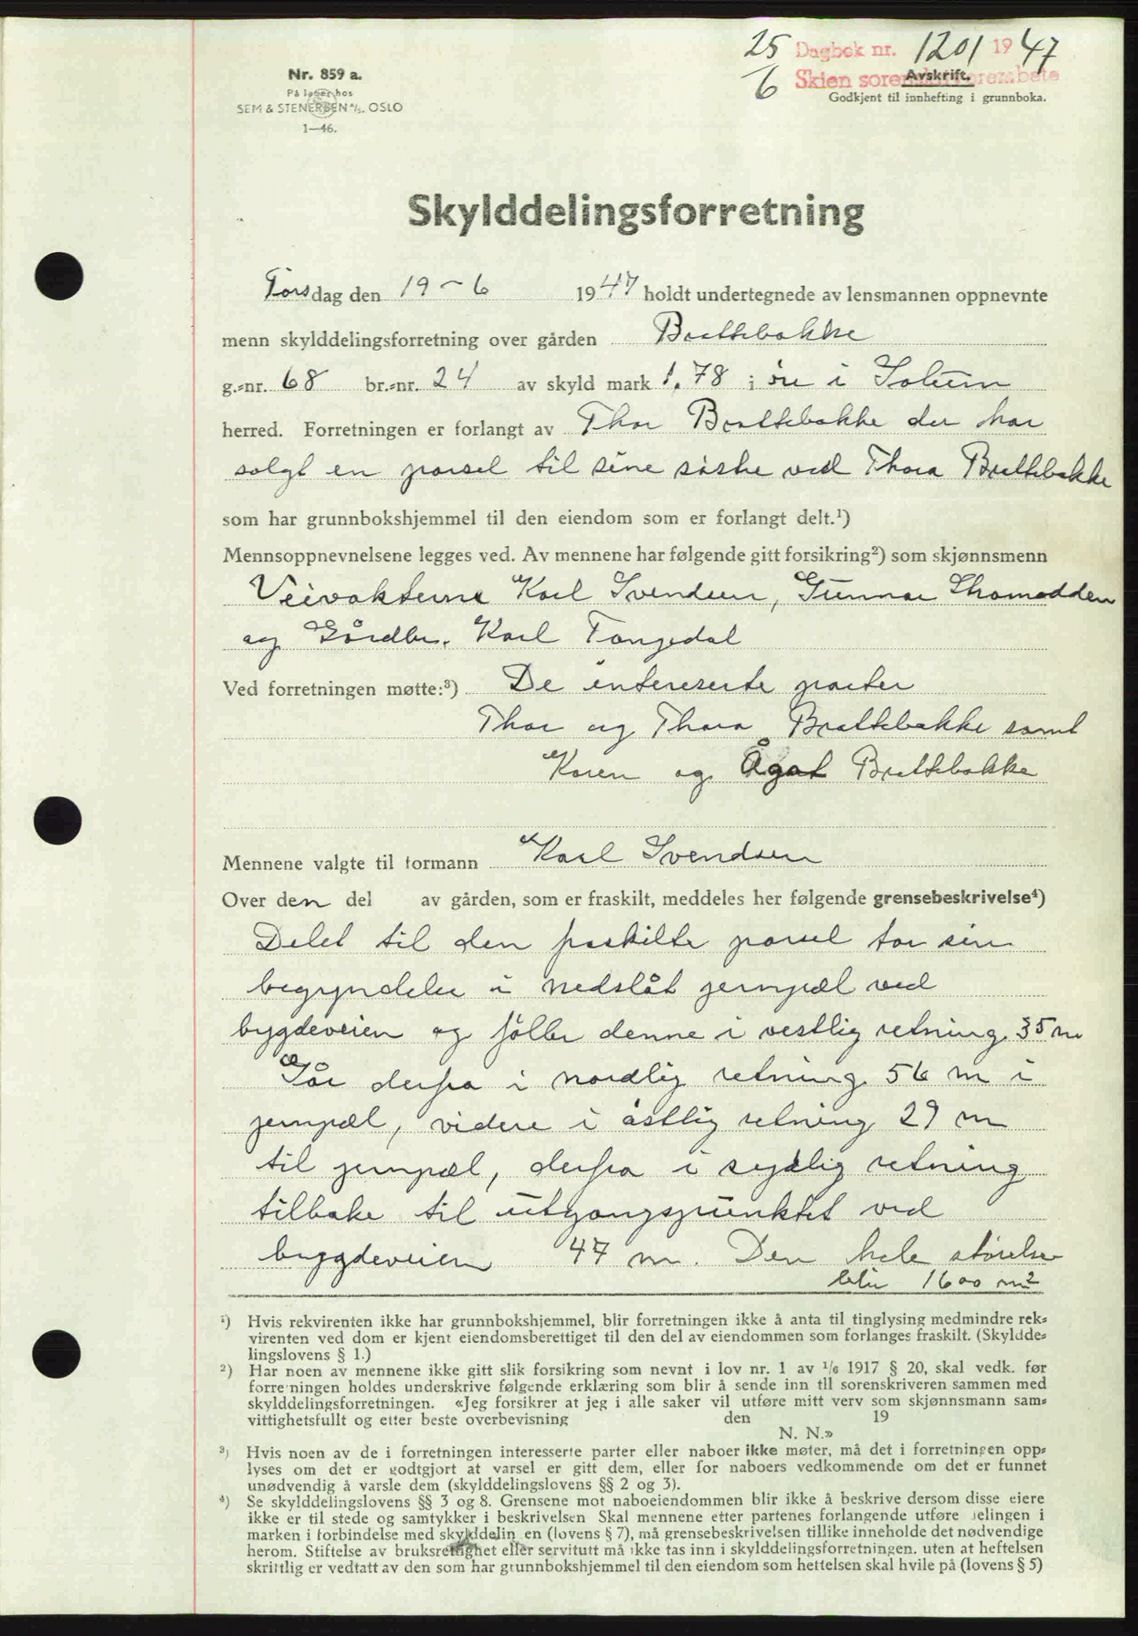 25/6 Dagbok nr. 1201 1947
Nr. 859 a.
Avskrift.
Skien sorenskriverembete
På lager hos
Godkjent til innhefting i grunnboka.
SEM & STENERSEN A/S. OSLO
1—46.
Skylddelingsforretning
Torsdag den 19 - 6 1947 holdt undertegnede av lensmannen oppnevnte
menn skylddelingsforretning over gården Brattebakke
g.-nr. 68 br.-nr. 24 av skyld mark 1.78 i øre i Solum
herred. Forretningen er forlangt av Thor Brattebakke der har
solgt en parsel til sine søske ved Thora Brattebakke
som har grunnbokshjemmel til den eiendom som er forlangt delt.¹)
Mennsoppnevnelsene legges ved. Av mennene har følgende gitt forsikring²) som skjønnsmenn
Veivokterne Karl Svendsen, Gunnar Stromodden
og Gårdbr. Karl Tangedal
Ved forretningen møtte:³) De intereserte parter
Thor og Thora Brattebakke samt
Karen og Ågot Brattebakke
Mennene valgte til formann Karl Svendsen
Over den del av gården, som er fraskilt, meddeles her følgende grensebeskrivelse⁴)
Delet til den fraskilte parsel tar sin
begyndelse i nedslåt jernpæl ved
bygdeveien og føller denne i vestlig retning 35 m
Går derfra i nordlig retning 56 m i
jernpæl, videre i østlig retning 29 m
til jernpæl, derfra i sydlig retning
tilbake til utgangspunktet ved
byggdeveien 47 m. Den hele størelse
blir 1600 m²
¹) Hvis rekvirenten ikke har grunnbokshjemmel, blir forretningen ikke å anta til tinglysing medmindre rek-
virenten ved dom er kjent eiendomsberettiget til den del av eiendommen som forlanges fraskilt. (Skyldde-
lingslovens § 1.)
²) Har noen av mennene ikke gitt slik forsikring som nevnt i lov nr. 1 av ¹/₆ 1917 § 20, skal vedk. før
forretningen holdes underskrive følgende erklæring som blir å sende inn til sorenskriveren sammen med
skylddelingsforretningen. «Jeg forsikrer at jeg i alle saker vil utføre mitt verv som skjønnsmann sam-
vittighetsfullt og etter beste overbevisning den 19
N. N.»
³) Hvis noen av de i forretningen interesserte parter eller naboer ikke møter, må det i forretningen opp-
lyses om det er godtgjort at varsel er gitt dem, eller for naboers vedkommende om det er funnet
unødvendig å varsle dem (skylddelingslovens §§ 2 og 3).
⁴) Se skylddelingslovens §§ 3 og 8. Grensene mot naboeiendommen blir ikke å beskrive dersom disse eiere
ikke er til stede og samtykker i beskrivelsen Skal mennene etter partenes forlangende utføre delingen i
marken i forbindelse med skylddelingen (lovens § 7), må grensebeskrivelsen tillike inneholde det nødvendige
herom. Stiftelse av bruksrettighet eller servitutt må ikke tas inn i skylddelingsforretningen, uten at heftelsen
skriftlig er vedtatt av den som har grunnbokshjemmel til den eiendom som heftelsen skal hvile på (lovens § 5)